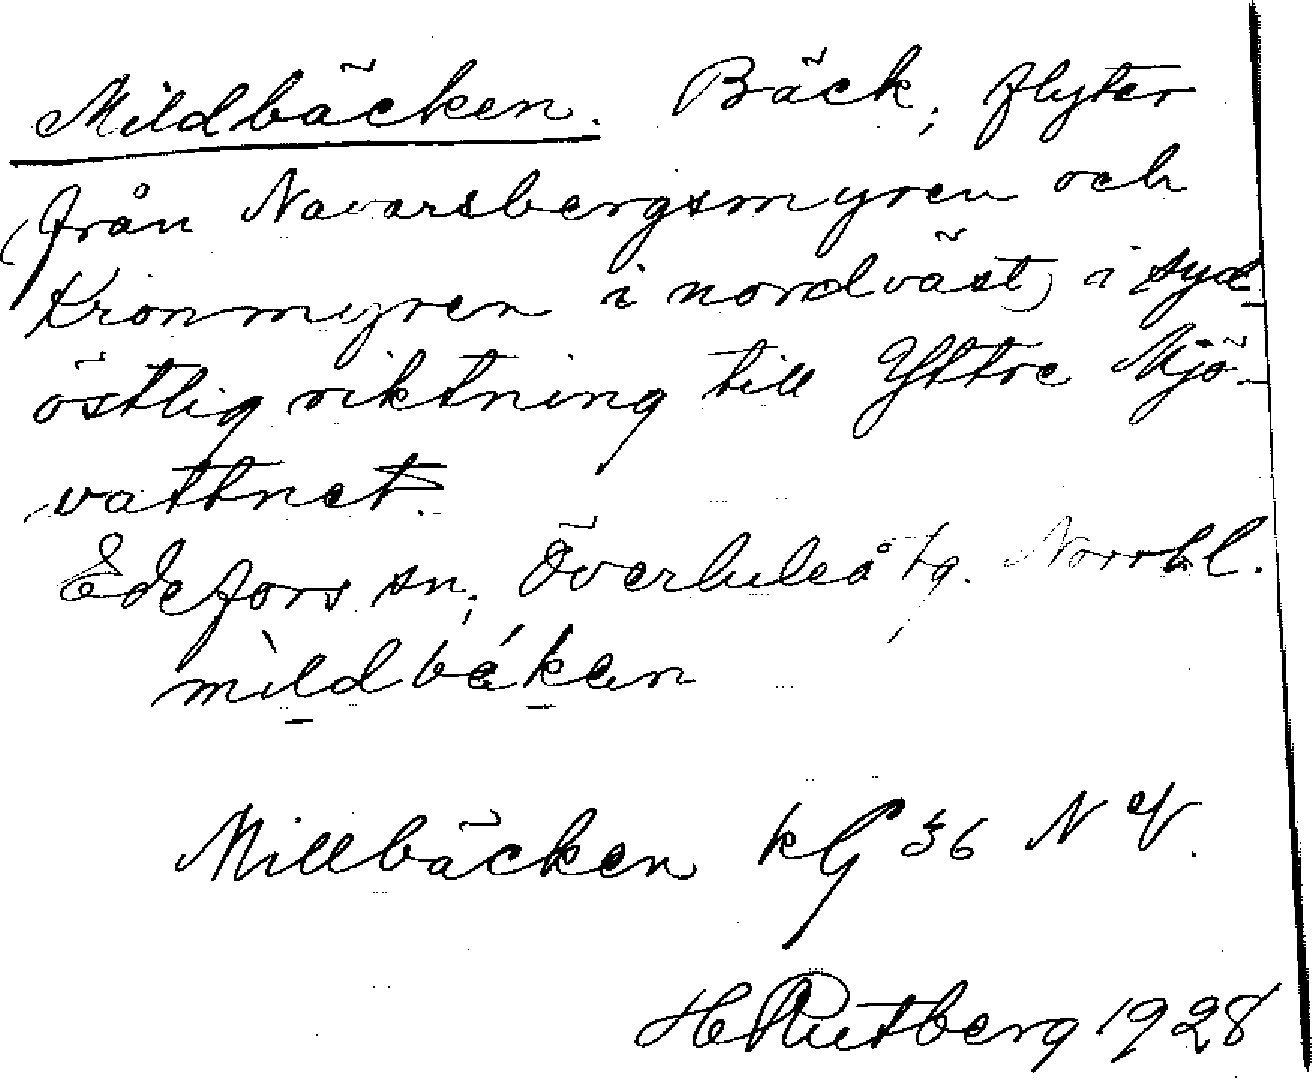 Mildbäcken. Bäck, flyter
från Navarsbergsmyren och
Kronmyren i nordväst, i syd-
östlig riktning till Yttre Mjö-
vattnet.
Edefors sn, Överluleå tg. Norrbl.
mìldbékan
Millbäcken kG 36 NV.
H Rutberg 1928